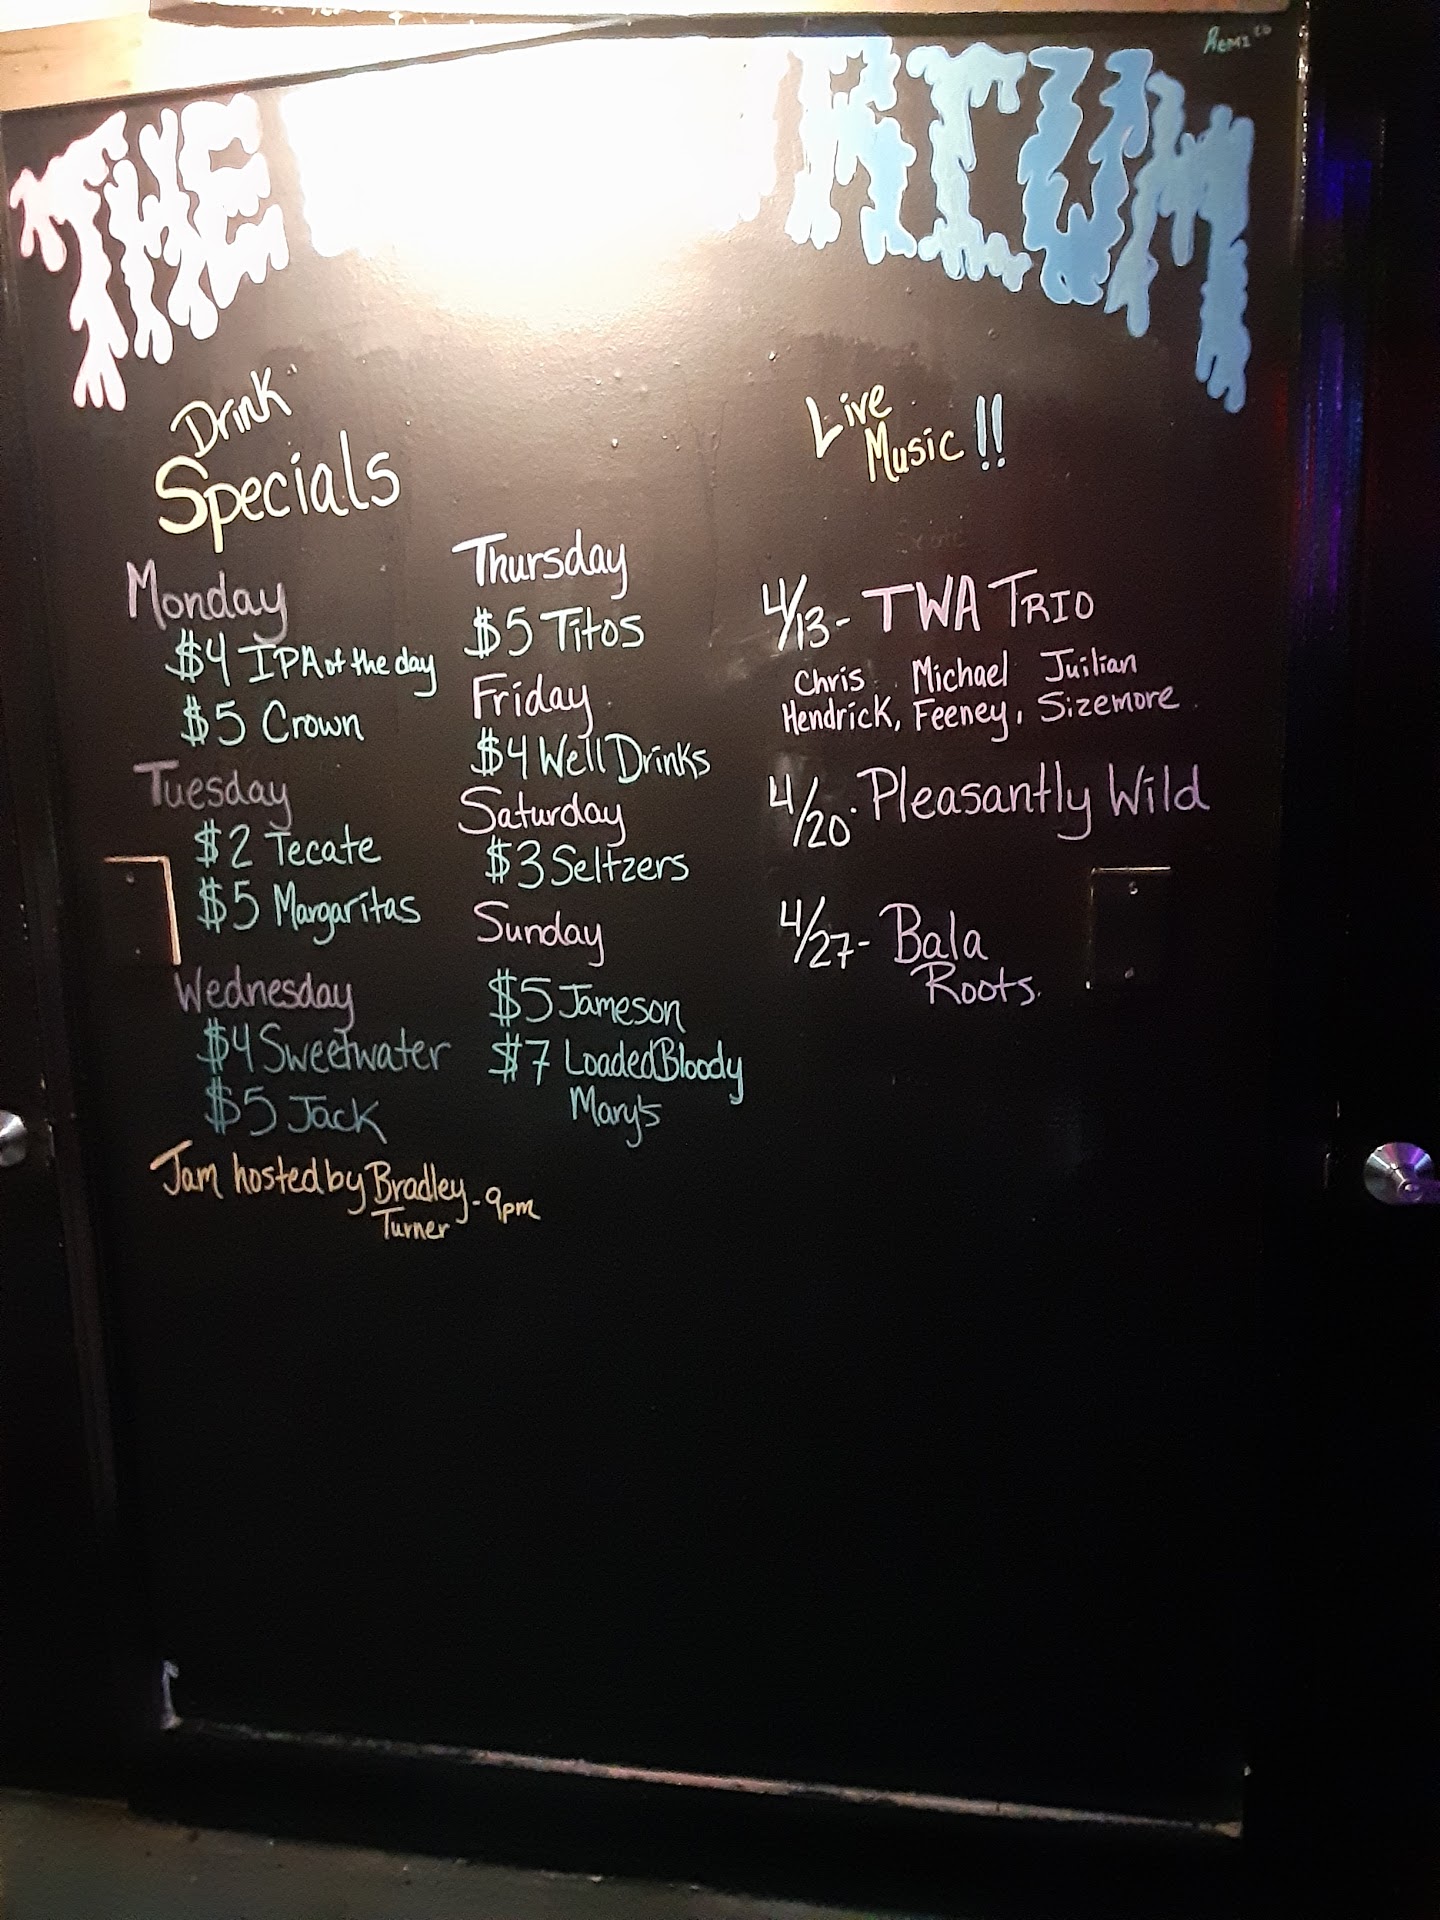 Remi
THE
Drink
Specials
Monday
$4 IPA of the day
$5 Crown
Tuesday
$2 Tecate
$5 Margaritas
Wednesday
$4 Sweetwater
$5 Jack
Jam hosted by Bradley - 9pm
Turner
Thursday
$5 Titos
Friday
$4 Well Drinks
Saturday
$3 Seltzers
Sunday
$5 Jameson
$7 Loaded Bloody
Mary's
Live
Music !!
4/13 - TWA TRIO
Chris Michael Juilian
Hendrick, Feeney, Sizemore
4/20 - Pleasantly Wild
4/27 - Bala
Roots.